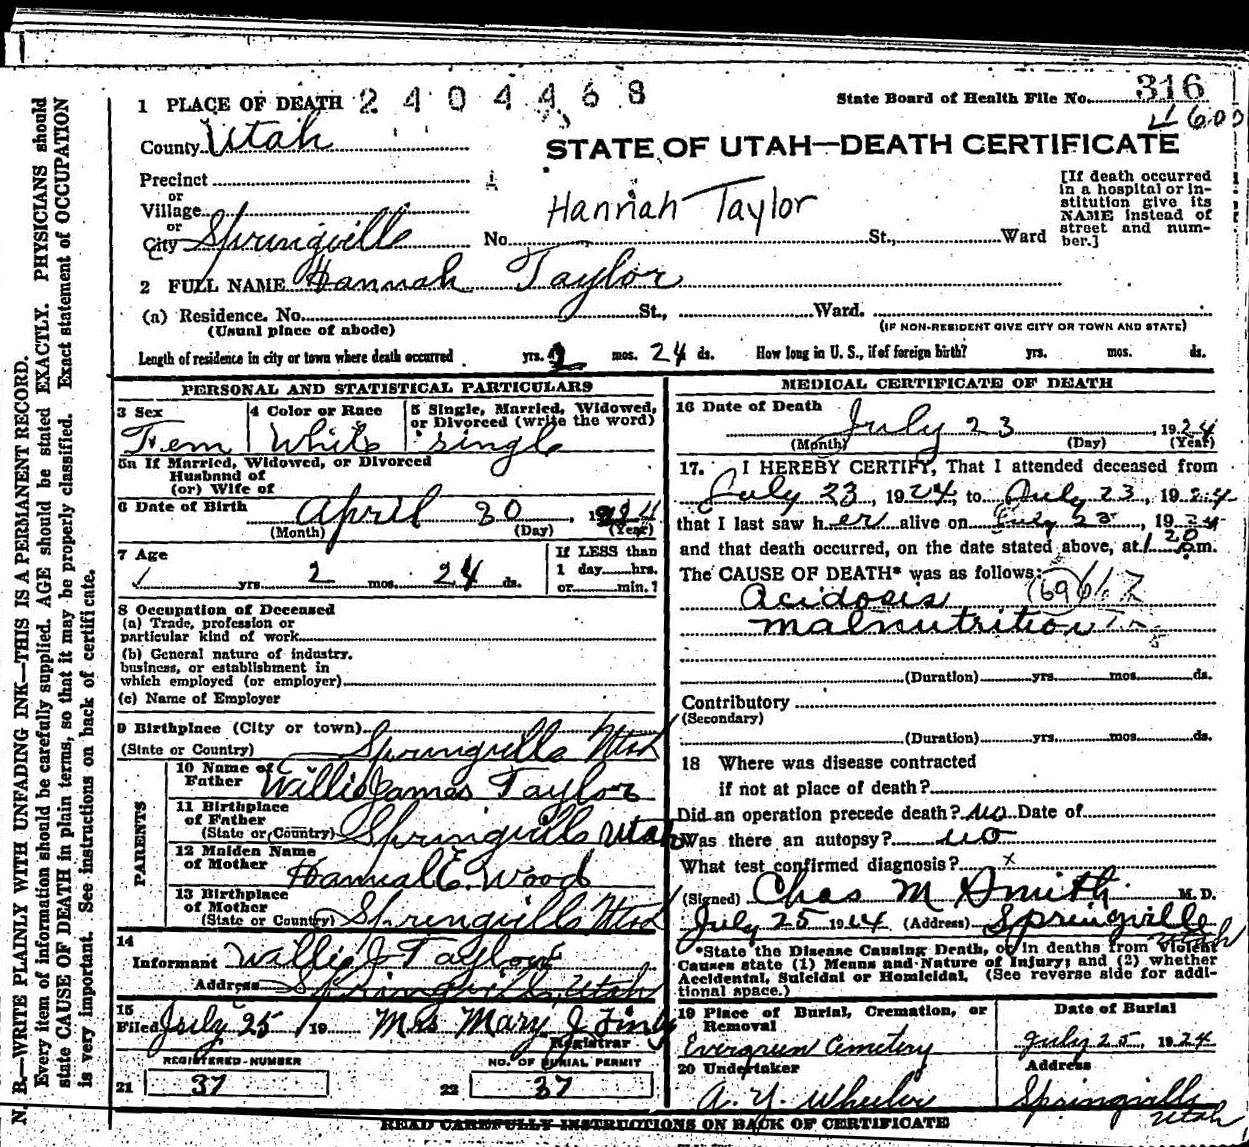 1 PLACE OF DEATH 2404468
State Board of Health File No. 316
4600
County Utah
STATE OF UTAH—DEATH CERTIFICATE
Precinct
or
Village
or
City Springville No. St., Ward
Hannah Taylor
[If death occurred
in a hospital or in-
stitution give its
NAME instead of
street and num-
ber.]
2 FULL NAME Hannah Taylor
(a) Residence. No. St., Ward.
(Usual place of abode)
(IF NON-RESIDENT GIVE CITY OR TOWN AND STATE)
Length of residence in city or town where death occurred yrs. 2 mos. 24 ds. How long in U. S., if of foreign birth? yrs. mos. ds.
PERSONAL AND STATISTICAL PARTICULARS
3 Sex
Fem
4 Color or Race
White
5 Single, Married, Widowed,
or Divorced (write the word)
single
5a If Married, Widowed, or Divorced
Husband of
(or) Wife of
6 Date of Birth April 30, 1924
(Month) (Day) (Year)
7 Age
yrs. 2 mos. 24 ds.
If LESS than
1 day hrs.
or min.?
8 Occupation of Deceased
(a) Trade, profession or
particular kind of work
(b) General nature of industry,
business, or establishment in
which employed (or employer)
(c) Name of Employer
9 Birthplace (City or town)
(State or Country) Springville Utah
PARENTS
10 Name of
Father Willis James Taylor
11 Birthplace
of Father
(State or Country) Springville Utah
12 Maiden Name
of Mother Hannah E. Wood
13 Birthplace
of Mother
(State or Country) Springville Utah
14
Informant Willis J Taylor
Address Springville, Utah
15
Filed July 25 19 Mrs Mary J
Registrar
REGISTERED NUMBER
21 37
NO. OF BURIAL PERMIT
22 37
MEDICAL CERTIFICATE OF DEATH
16 Date of Death July 23 1924
(Month) (Day) (Year)
17. I HEREBY CERTIFY, That I attended deceased from
July 23, 1924, to July 23, 1924
that I last saw her alive on July 23, 1924
and that death occurred, on the date stated above, at 1 20 m.
The CAUSE OF DEATH* was as follows:
Acidosis
malnutrition
(Duration) yrs. mos. ds.
Contributory
(Secondary)
(Duration) yrs. mos. ds.
18 Where was disease contracted
if not at place of death?
Did an operation precede death? no Date of
Was there an autopsy? no
What test confirmed diagnosis? x
(Signed) Chas M Smith M. D.
July 25 1924 (Address) Springville Utah
*State the Disease Causing Death, or in deaths from Violent
Causes state (1) Means and Nature of Injury; and (2) whether
Accidental, Suicidal or Homicidal. (See reverse side for addi-
tional space.)
19 Place of Burial, Cremation, or
Removal
Evergreen Cemetery
Date of Burial
July 25, 1924
20 Undertaker
A. Y. Wheeler
Address
Springville
Utah
READ CAREFULLY INSTRUCTIONS ON BACK OF CERTIFICATE
N. B.—WRITE PLAINLY WITH UNFADING INK—THIS IS A PERMANENT RECORD.
Every item of information should be carefully supplied. AGE should be stated EXACTLY. PHYSICIANS should
state CAUSE OF DEATH in plain terms, so that it may be properly classified. Exact statement of OCCUPATION
is very important. See instructions on back of certificate.